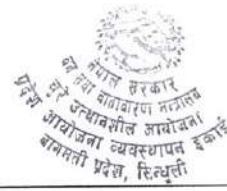 नेपाल सरकार
वन तथा वातावरण मन्त्रालय
चुरे उत्थानशील आयोजना
प्रदेश आयोजना व्यवस्थापन इकाई
बागमती प्रदेश, सिन्धुली